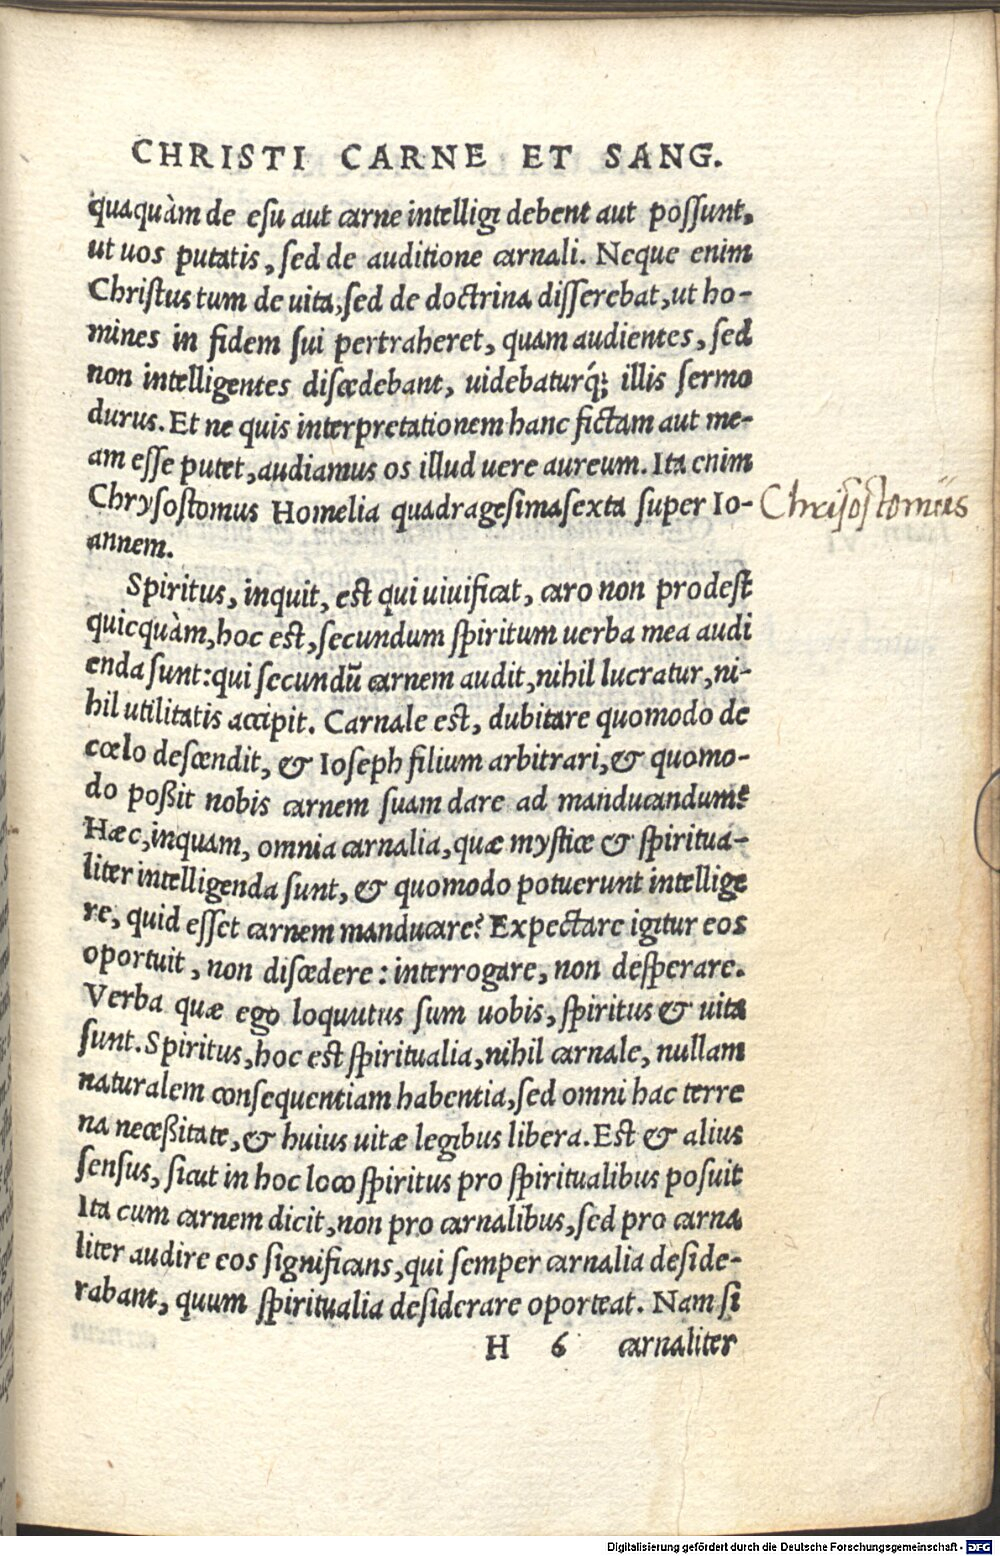 CHRISTI CARNE ET SANG.
quaquàm de esu aut carne intelligi debent aut possunt,
ut uos putatis, sed de auditione carnali. Neque enim
Christus tum de uita, sed de doctrina disserebat, ut ho-
mines in fidem sui pertraheret, quam audientes, sed
non intelligentes discedebant, uidebaturq́; illis sermo
durus. Et ne quis interpretationem hanc fictam aut me-
am esse putet, audiamus os illud uere aureum. Ita enim
Chrysostomus Homelia quadragesimasexta super Io-
Chrisostomus
annem.
Spiritus, inquit, est qui uiuificat, caro non prodest
quicquàm, hoc est, secundum spiritum uerba mea audi
enda sunt: qui secundū carnem audit, nihil lucratur, ni-
hil utilitatis accipit. Carnale est, dubitare quomodo de
cœlo descendit, & Ioseph filium arbitrari, & quomo-
do poßit nobis carnem suam dare ad manducandum?
Hæc, inquam, omnia carnalia, quæ mystice & spiritua-
liter intelligenda sunt, & quomodo potuerunt intellige
re, quid esset carnem manducare? Expectare igitur eos
oportuit, non discedere: interrogare, non desperare.
Verba quæ ego loquutus sum uobis, spiritus & uita
sunt. Spiritus, hoc est spiritualia, nihil carnale, nullam
naturalem consequentiam habentia, sed omni hac terre
na neceßitate, & huius uitæ legibus libera. Est & alius
sensus, sicut in hoc loco spiritus pro spiritualibus posuit
Ita cum carnem dicit, non pro carnalibus, sed pro carna
liter audire eos significans, qui semper carnalia deside-
rabant, quum spiritualia desiderare oporteat. Nam si
H 6 carnaliter
Digitalisierung gefördert durch die Deutsche Forschungsgemeinschaft - DFG